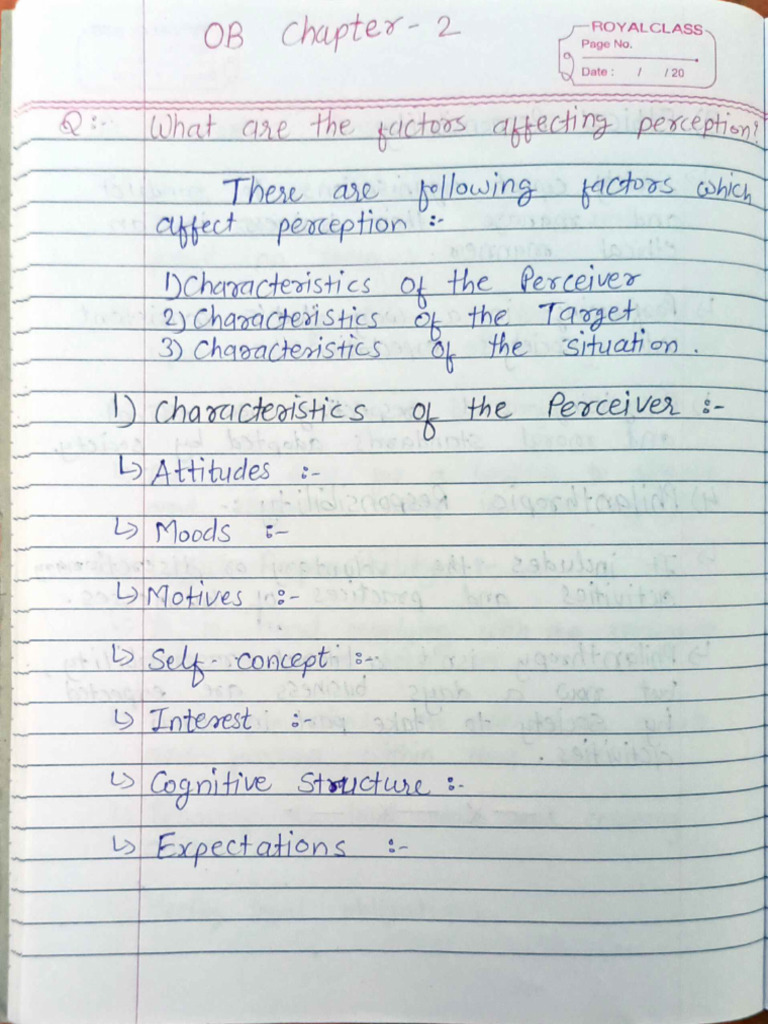 OB Chapter - 2
ROYALCLASS
Page No.
Date : / / 20
Q:- What are the factors affecting perception?
There are following factors which
affect perception :-
1) Characteristics of the Perceiver
2) Characteristics of the Target
3) Characteristics of the situation.
1) Characteristics of the Perceiver :-
↳ Attitudes :-
↳ Moods :-
↳ Motives :-
↳ Self-concept :-
↳ Interest :-
↳ Cognitive Structure :-
↳ Expectations :-